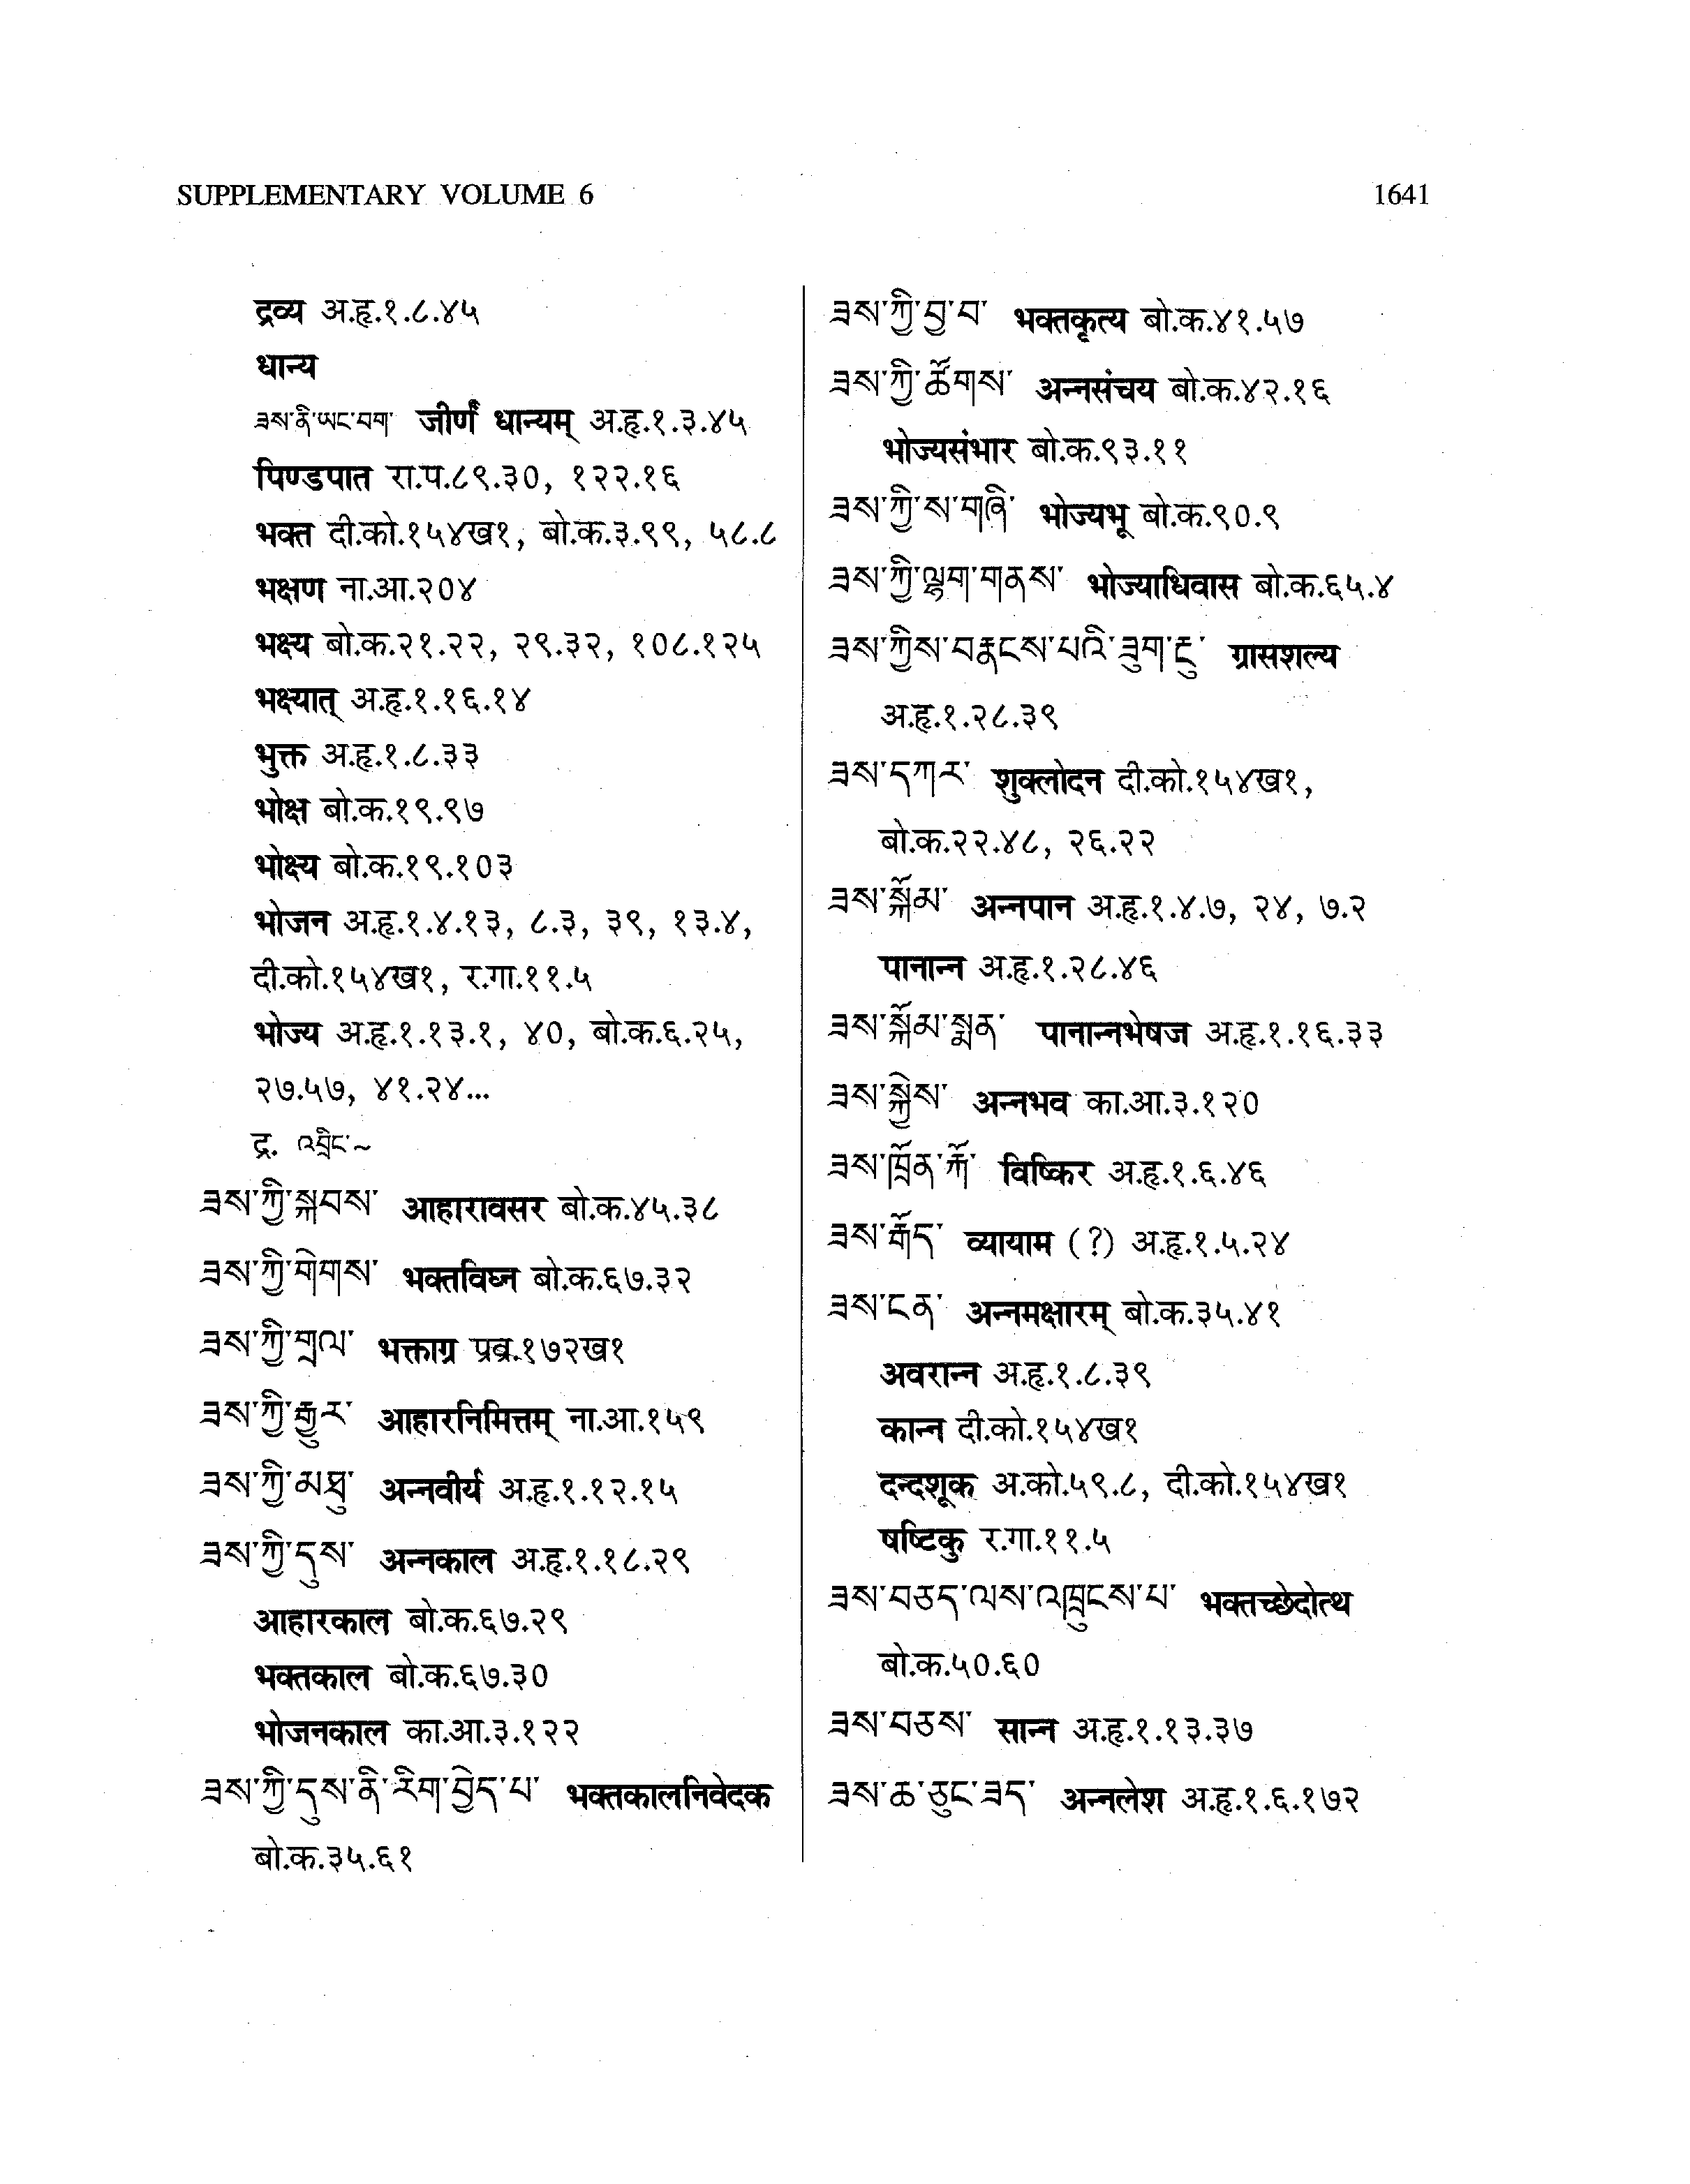 SUPPLEMENTARY VOLUME 6 1641
द्रव्य अ.हृ.१.८.४५
धान्य
ཟས་ནི་ཡང་བག་ जीर्णं धान्यम् अ.हृ.१.३.४५
पिण्डपात रा.प.८९.३०, १२२.१६
भक्त दी.को.१५४ख१, बो.क.३.९९, ५८.८
भक्षण ना.आ.२०४
भक्ष्य बो.क.२१.२२, २९.३२, १०८.१२५
भक्ष्यात् अ.हृ.१.१६.१४
भुक्त अ.हृ.१.८.३३
भोक्ष बो.क.१९.९७
भोक्ष्य बो.क.१९.१०३
भोजन अ.हृ.१.४.१३, ८.३, ३९, १३.४,
दी.को.१५४ख१, र.गा.११.५
भोज्य अ.हृ.१.१३.१, ४०, बो.क.६.२५,
२७.५७, ४१.२४...
द्र. འབྲིང་~
ཟས་ཀྱི་སྐབས་ आहारावसर बो.क.४५.३८
ཟས་ཀྱི་གེགས་ भक्तविघ्न बो.क.६७.३२
ཟས་ཀྱི་གྲལ་ भक्ताग्र प्रव्र.१७२ख१
ཟས་ཀྱི་རྒྱུར་ आहारनिमित्तम् ना.आ.१५९
ཟས་ཀྱི་མཐུ་ अन्नवीर्य अ.हृ.१.१२.१५
ཟས་ཀྱི་དུས་ अन्नकाल अ.हृ.१.१८.२९
आहारकाल बो.क.६७.२९
भक्तकाल बो.क.६७.३०
भोजनकाल का.आ.३.१२२
ཟས་ཀྱི་དུས་ནི་རིག་བྱེད་པ་ भक्तकालनिवेदक
बो.क.३५.६१
ཟས་ཀྱི་བྱ་བ་ भक्तकृत्य बो.क.४१.५७
ཟས་ཀྱི་ཚོགས་ अन्नसंचय बो.क.४२.१६
भोज्यसंभार बो.क.९३.११
ཟས་ཀྱི་ས་གཞི་ भोज्यभू बो.क.९०.९
ཟས་ཀྱི་ལྷག་གནས་ भोज्याधिवास बो.क.६५.४
ཟས་ཀྱིས་བརྣངས་པའི་ཟུག་རྔུ་ ग्रासशल्य
अ.हृ.१.२८.३९
ཟས་དཀར་ शुक्लोदन दी.को.१५४ख१,
बो.क.२२.४८, २६.२२
ཟས་སྐོམ་ अन्नपान अ.हृ.१.४.७, २४, ७.२
पानान्न अ.हृ.१.२८.४६
ཟས་སྐོམ་སྨན་ पानान्नभेषज अ.हृ.१.१६.३३
ཟས་སྐྱེས་ अन्नभव का.आ.३.१२०
ཟས་ཁྲོན་ཀོ་ विष्किर अ.हृ.१.६.४६
ཟས་རྒོད་ व्यायाम (?) अ.हृ.१.५.२४
ཟས་ངན་ अन्नमक्षारम् बो.क.३५.४१
अवरान्न अ.हृ.१.८.३९
कान्न दी.को.१५४ख१
दन्दशूक अ.को.५९.८, दी.को.१५४ख१
षष्टिकु र.गा.११.५
ཟས་བཅད་ལས་འཁྲུངས་པ་ भक्तच्छेदोत्थ
बो.क.५०.६०
ཟས་བཅས་ सान्न अ.हृ.१.१३.३७
ཟས་ཆ་ཅུང་ཟད་ अन्नलेश अ.हृ.१.६.१७२